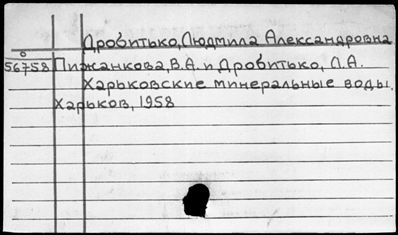 Дробитько, Людмила Александровна
56758 Пижанкова, В.А. и Дробитько, Л.А.
Харьковские минеральные воды.
Харьков, 1958